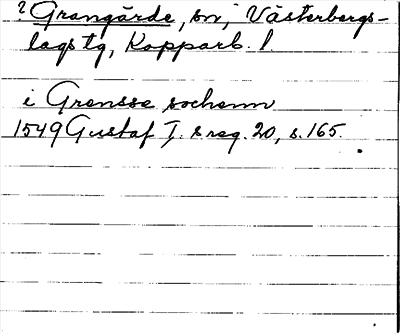 ? Grangärde, sn, Västerbergs-
lags tg, Kopparb. l
i Grensse sochenn
1549 Gustaf I:s reg. 20, s. 165.